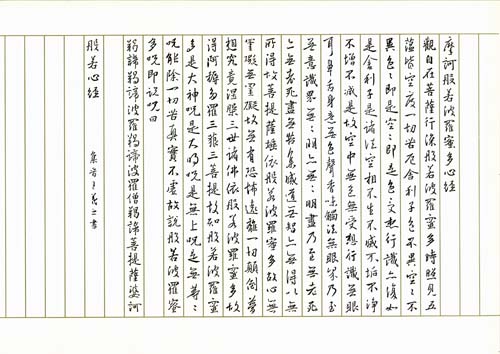 摩訶般若波羅蜜多心經
觀自在菩薩行深般若波羅蜜多時照見五
蘊皆空度一切苦厄舍利子色不異空〻不
異色〻即是空〻即是色受想行識亦復如
是舍利子是諸法空相不生不滅不垢不淨
不增不減是故空中無色無受想行識無眼
耳鼻舌身意無色聲香味觸法無眼界乃至
無意識界無〻明亦無〻明盡乃至無老死
亦無老死盡無苦集滅道無智亦無得以無
所得故菩提薩埵依般若波羅蜜多故心無
罣礙無罣礙故無有恐怖遠離一切顛倒夢
想究竟涅槃三世諸佛依般若波羅蜜多故
得阿耨多羅三藐三菩提故知般若波羅蜜
多是大神呪是大明呪是無上呪是無等〻
呪能除一切苦真實不虛故說般若波羅蜜
多呪即說呪曰
羯諦羯諦波羅羯諦波羅僧羯諦菩提薩婆訶
般若心經
集晉王羲之書